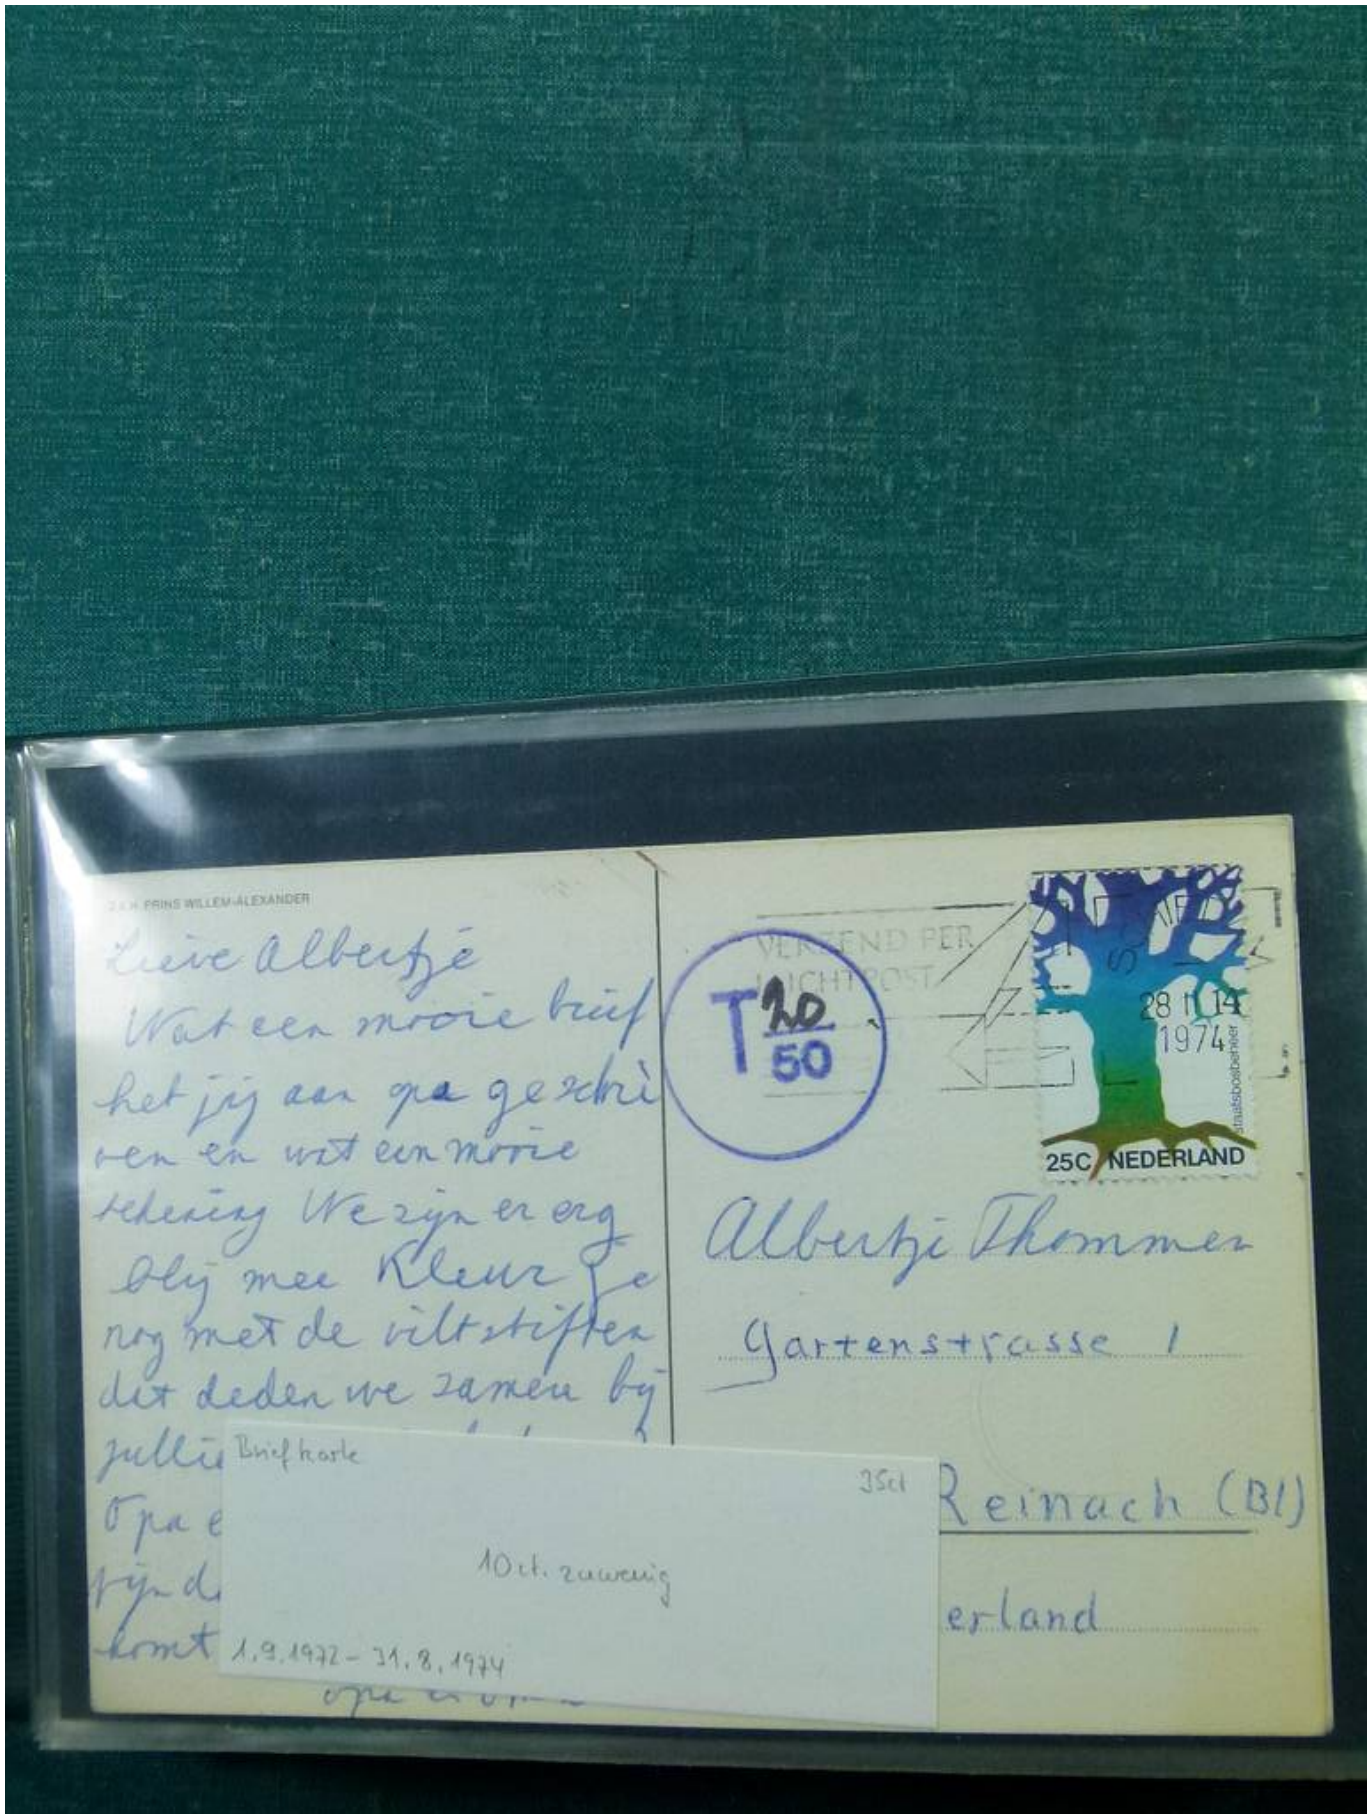 Z.K.H. PRINS WILLEM-ALEXANDER
Lieve Albertje
Wat een mooie brief
het jij aan opa geschri
ven en wat een mooie
tekening We zijn er erg
blij mee Kleur je
nog met de viltstiften
dit deden we samen bij
jullie
Opa e
fijn d
komt
opa en
VERZEND PER
LUCHTPOST
T 20
50
28 II 14
1974
staatsbosbeheer
25C NEDERLAND
Albertje Thommen
Gartenstrasse 1
Reinach (Bl)
erland
Briefkarte
35ct
10 ct. zuwenig
1.9.1972 - 31.8.1974